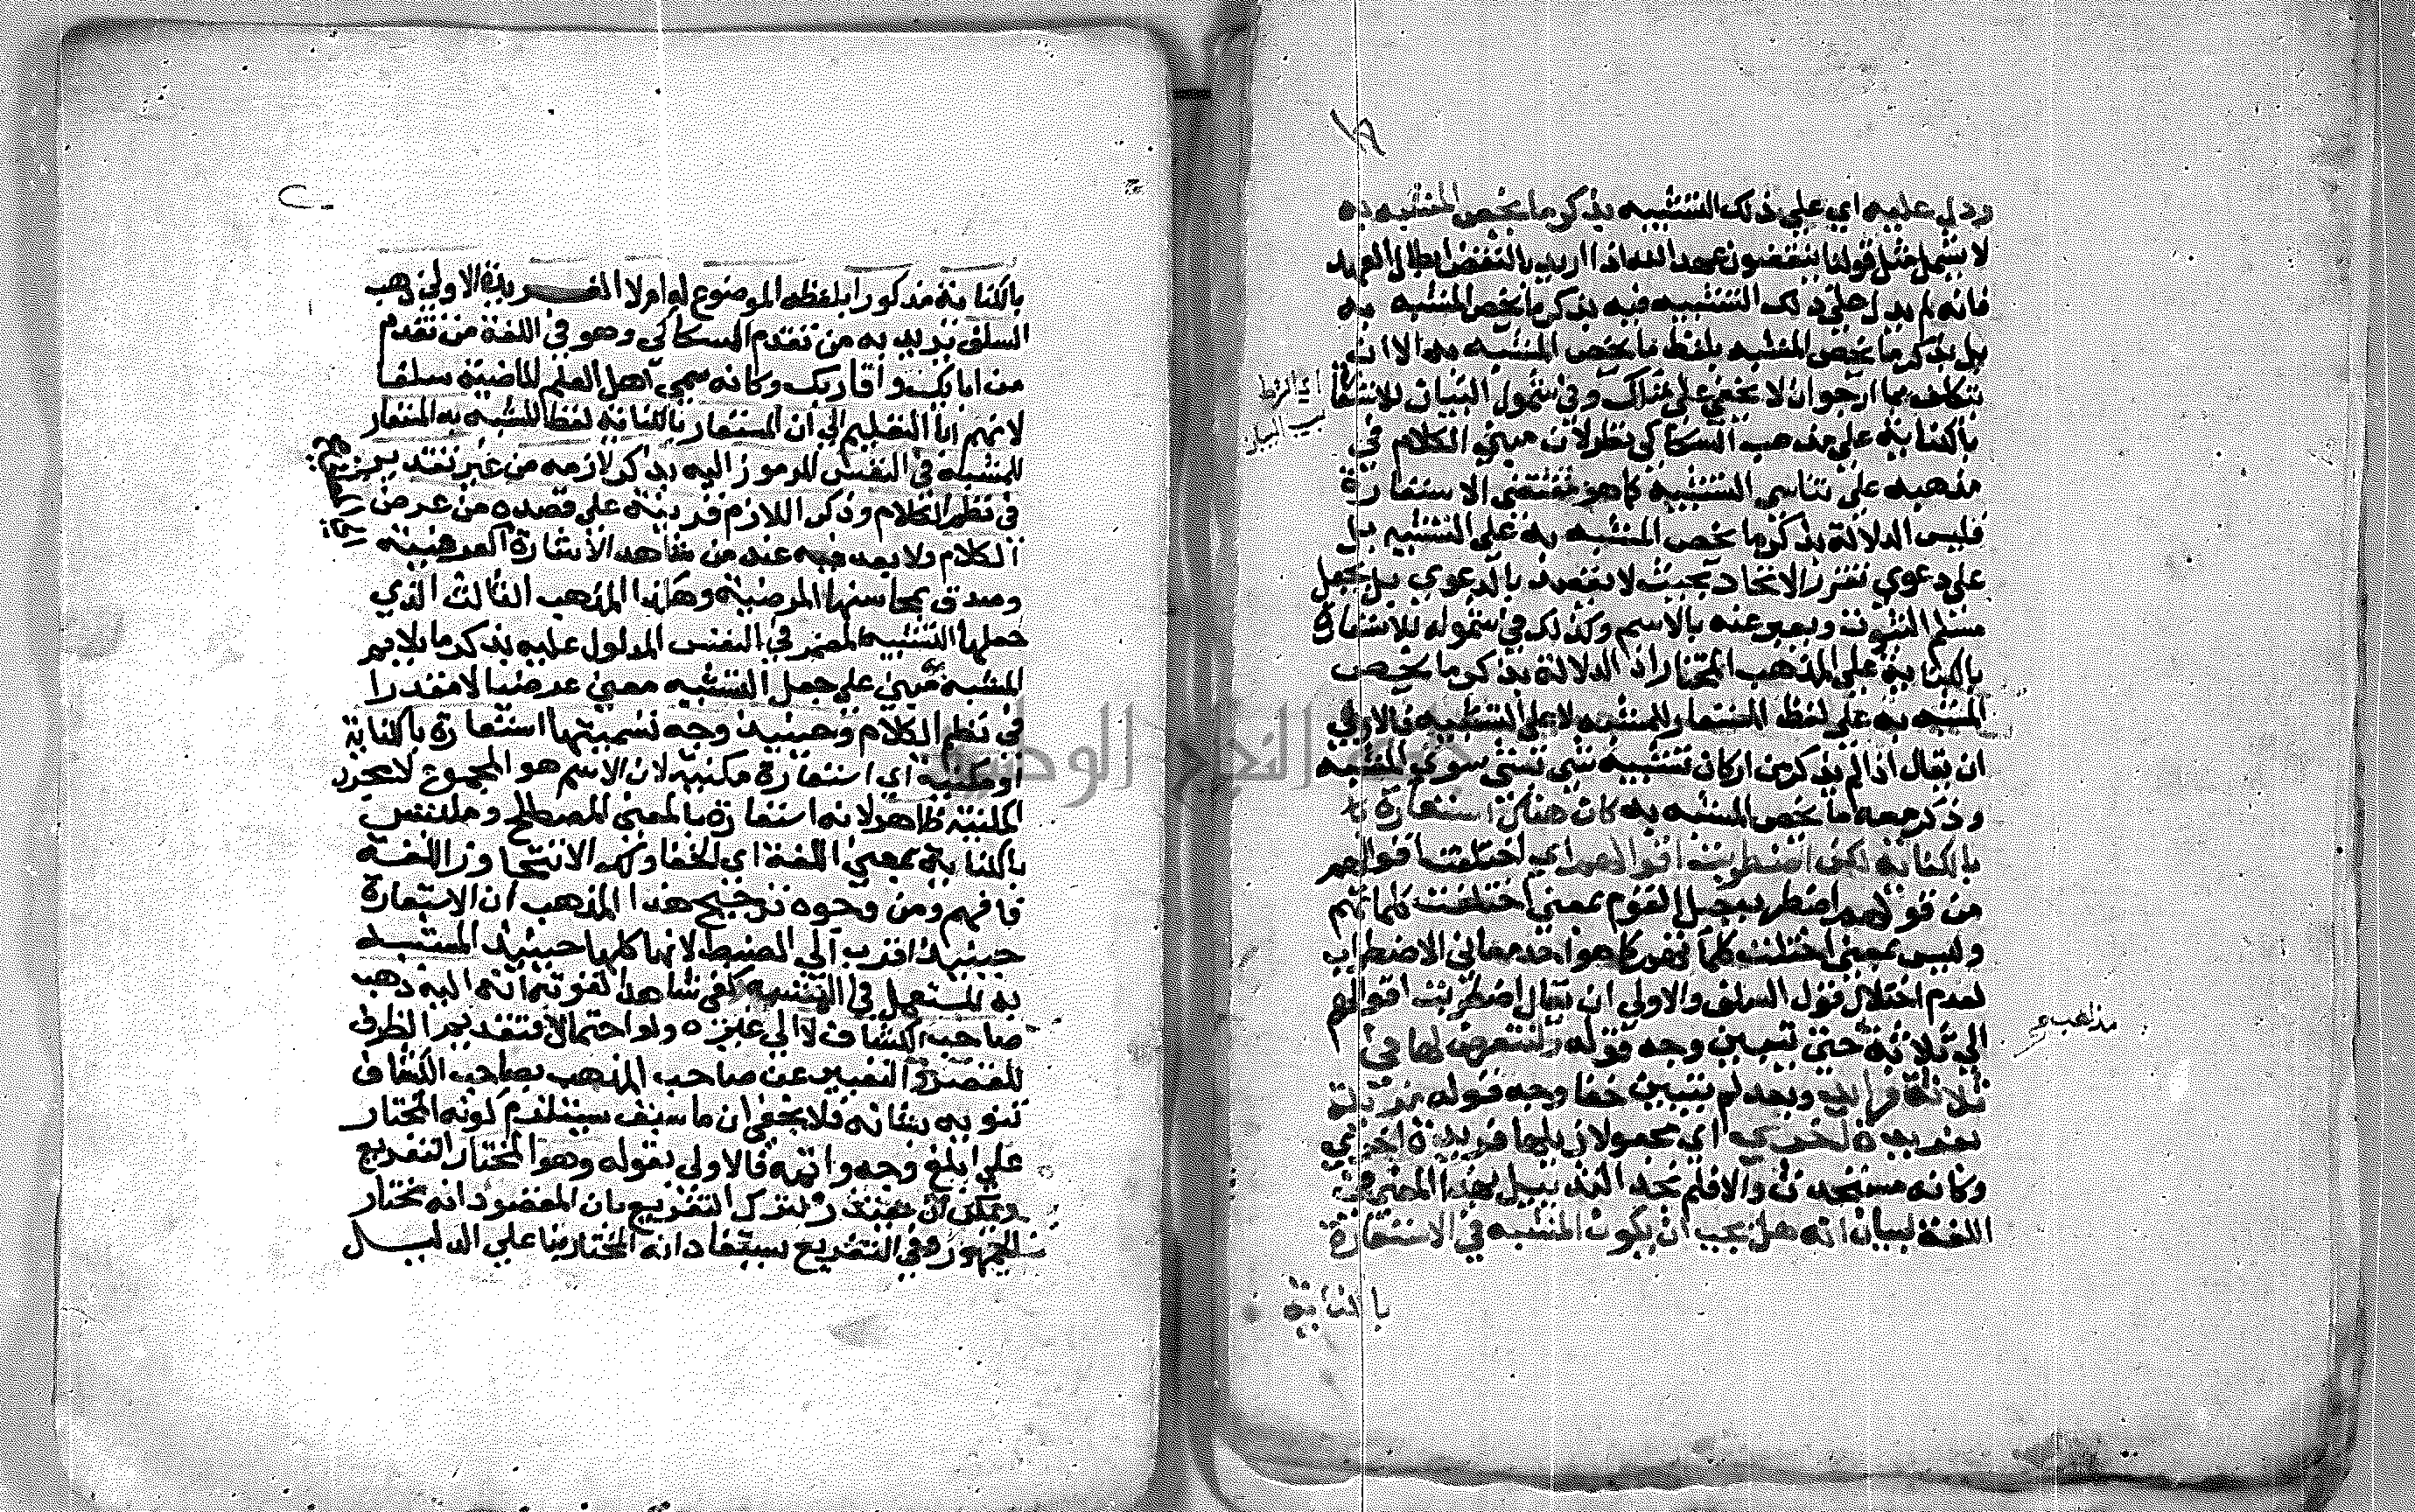 ١٨
ودل عليه اي على ذلك التشبيه بذكر ما يخص المشبه به
لا يشمل مثل قولنا ينقضون عهد الله اذا اريد بالنقض ابطال العهد
فانه لم يدل على ذلك التشبيه فيه بذكر ما يخص المشبه به
بل بذكر ما يخص المشبه بلفظ ما يخص المشبه به الا ان
يتكلف بما ارجو ان لا يخفي على مثلك وفي شمول البيان للاستعارة
بالكناية على مذهب السكاكي نظر لان مبني الكلام في
مذهبه على تناسي التشبيه كما هو مقتضي الاستعارة
فليس الدلالة بذكر ما يخص المشبه به على التشبيه بل
على دعوي تقرر الاتحاد بحيث لا يقصد بالدعوي بل يجعل
مسلم الثبوت ويعبر عنه بالاسم وكذلك في شموله للاستعارة
بالكناية على المذهب المختار اذ الدلالة بذكر ما يخص
المشبه به على لفظ المستعار للمشبه لا على التشبيه فالاولي
ان يقال اذا لم يذكر من اركان تشبيه شي بشي سوي المشبه
وذكر معه ما يخص المشبه به كان هناك استعارة
بالكناية لكن اضطربت اقوالهم اي اختلفت اقوالهم
من قولهم اضطرب حبل القوم بمعني اختلفت كلماتهم
وليس بمعني اختلت كلماتهم كما هو احد معاني الاضطراب
لعدم اختلال قول السلف والاولي ان يقال اضطربت اقوالهم
الي ثلاثة حتى يتبين وجه قوله ولنتعرض لها في
ثلاثة فرايد وبعد لم يتبين خفا وجه قوله مزيلة
بفريدة اخري اي مجعولا ذيلها فريدة اخري
وكانه مستحدث والا فلم نجد التذييل بهذا المعني في
اللغة لبيان انه هل يجب ان يكون المشبه في الاستعارة
بالكناية
مذاهب
بالكناية مذكورا بلفظه الموضوع له ام لا الفريدة الاولي ذهب
السلف يريد به من تقدم السكاكي وهو في اللغة من تقدم
من ابايك واقاربك وكانه سمي اهل العلم الماضية سلفا
لانهم ابا التعليم الي ان المستعار بالكناية لفظ المشبه به المستعار
للمشبه في النفس المرموز اليه بذكر لازمه من غير تقدير
في نظم الكلام وذكر اللازم قرينة على قصده من عرض
الكلام ولا يعد فيه عند من شاهد الاشارة
وصدق بمحاسنها المرضية وهذا المذهب الثالث الذي
جعلها التشبيه المضمر في النفس المدلول عليه بذكر ما يلايم
المشبه مبني على جعل التشبيه معني عرضيا لا مقدرا
في نظم الكلام وحينيذ وجه تسميتها استعارة بالكناية
او مكنية اي استعارة مكنية لان الاسم هو المجموع لا مجرد
المكنية ظاهر لانه استعارة بالمعني المصطلح وملتبس
بالكناية بمعني اللغة اي الخفا
فافهم ومن وجوه ترجيح هذا المذهب ان الاستعارة
حينيذ اقرب الي الضبط لانها كلها حينيذ المشبه
به المستعمل في المشبه وكفى شاهدا لقوته انه اليه ذهب
صاحب الكشاف لا الي غيره ولو احتمالا فتقديم الظرف
للقصر والتعبير عن صاحب المذهب بصاحب الكشاف
تنويه بشانه فلا يخفى ان ما سبق يستلزم كونه المختار
على ابلغ وجه واتمه فالاولي بقوله وهو المختار التفريع
ويمكن ان يعتذر لترك التفريع بان المقصود انه مختار
للجمهور وفي التفريع يستفاد انه المختار بنا على الدليل